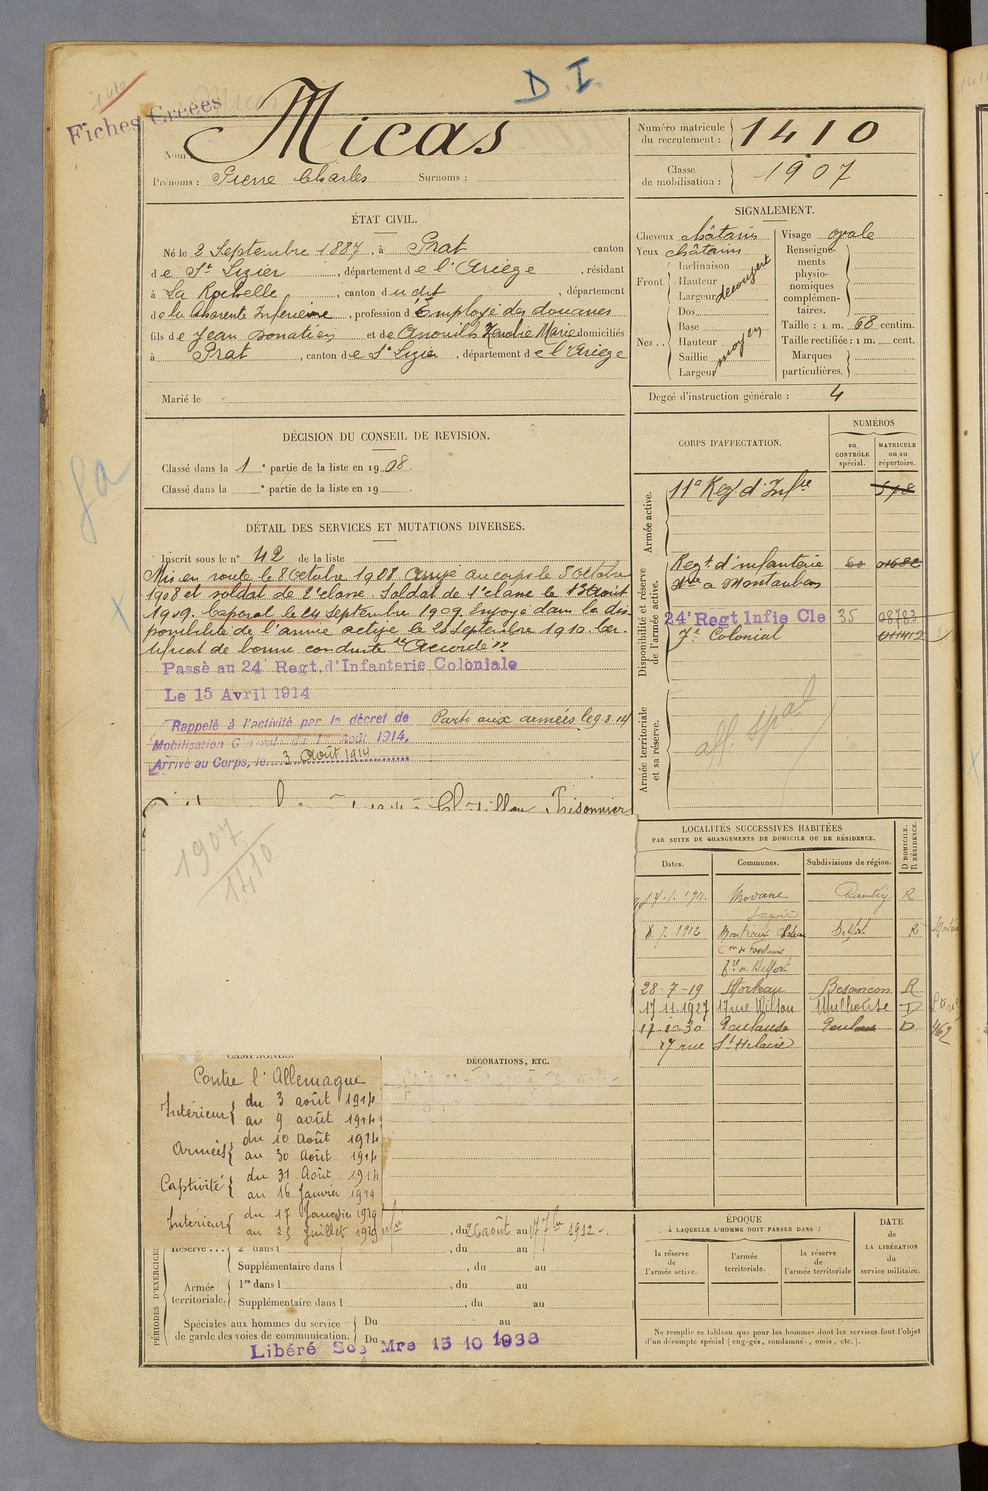 D. I.
1410
Fiches Créées
Nom : Micas
Prénoms : Pierre Charles Surnoms :
Numéro matricule du recrutement : 1410
Classe de mobilisation : 1907
ÉTAT CIVIL.
Né le 2 Septembre 1887, à Prat canton
de St Lizier, département de l'Ariège, résidant
à La Rochelle, canton dudit, département
de la Charente Inférieure, profession d'Employé des douanes
fils de Jean Donatien et de Anouilh Zénobie Marie domiciliés
à Prat, canton de St Lizier, département de l'Ariège
Marié le
SIGNALEMENT.
Cheveux châtains
Yeux châtains
Front. Inclinaison
Hauteur
Largeur découvert
Nez.. Dos
Base
Hauteur moyen
Saillie
Largeur
Visage ovale
Renseignements physionomiques complémentaires.
Taille : 1 m. 68 centim.
Taille rectifiée : 1 m. cent.
Marques particulières.
Degré d'instruction générale : 4
DÉCISION DU CONSEIL DE REVISION.
Classé dans la 1e partie de la liste en 1908.
Classé dans la e partie de la liste en 19
DÉTAIL DES SERVICES ET MUTATIONS DIVERSES.
Inscrit sous le n° 42 de la liste
Mis en route le 8 Octobre 1908 Arrivé au corps le 8 Octobre
1908 et soldat de 2e classe. Soldat de 1e classe le 13 août
1909. Caporal le 24 Septembre 1909. Envoyé dans la dis
ponibilité de l'armée active le 25 Septembre 1910. Cer-
tificat de bonne conduite "Accordé".
Passé au 24e Regt. d'Infanterie Coloniale
Le 15 Avril 1914
Rappelé à l'activité par le décret de
Mobilisation Générale du 1er Août 1914,
Arrivé au Corps, le 3 Août 1914
Parti aux armées le 9.8.14
Châtillon Prisonnier
1907
1410
CORPS D'AFFECTATION.
NUMÉROS
au CONTRÔLE spécial.
MATRICULE ou au répertoire.
Armée active.
11e Régt d'Infie
Disponibilité et réserve de l'armée active.
Regt d'infanterie
Montauban
24e Regt Infie Cle 35 08783
7e Colonial
Armée territoriale et sa réserve.
aff. spal
LOCALITÉS SUCCESSIVES HABITÉES
PAR SUITE DE CHANGEMENTS DE DOMICILE OU DE RÉSIDENCE.
Dates. Communes. Subdivisions de région. D DOMICILE. R RÉSIDENCE.
Modane Chambéry R
8.7.1912 Montreux Château Belfort R
Con de Fontaine
Tre de Belfort
28-7-19 Morteau Besançon R
17.11.1927 17 rue Wilson Mulhouse D
Toulouse Toulouse D
27 rue St Hilaire
CAMPAGNES.
Contre l'Allemagne
Intérieur du 3 août 1914
au 9 août 1914
Armées du 10 Août 1914
au 30 Août 1914
Captivité du 31 Août 1914
au 16 Janvier 1919
Intérieur du 17 Janvier 1919
au 25 Juillet 1919
DÉCORATIONS, ETC.
PÉRIODES D'EXERCICES
, du 26 août au 17 7bre 1912
Réserve... 2e dans l , du au
Supplémentaire dans l , du au
Armée territoriale. 1re dans l , du au
Supplémentaire dans l , du au
Spéciales aux hommes du service de garde des voies de communication. Du au
Du au
Libéré Sce Mre 15 10 1936
ÉPOQUE
À LAQUELLE L'HOMME DOIT PASSER DANS :
la réserve de l'armée active.
l'armée territoriale.
la réserve de l'armée territoriale
DATE
DE LA LIBÉRATION
du
service militaire.
Ne remplir ce tableau que pour les hommes dont les services font l'objet
d'un décompte spécial (engagés, condamnés, omis, etc.).